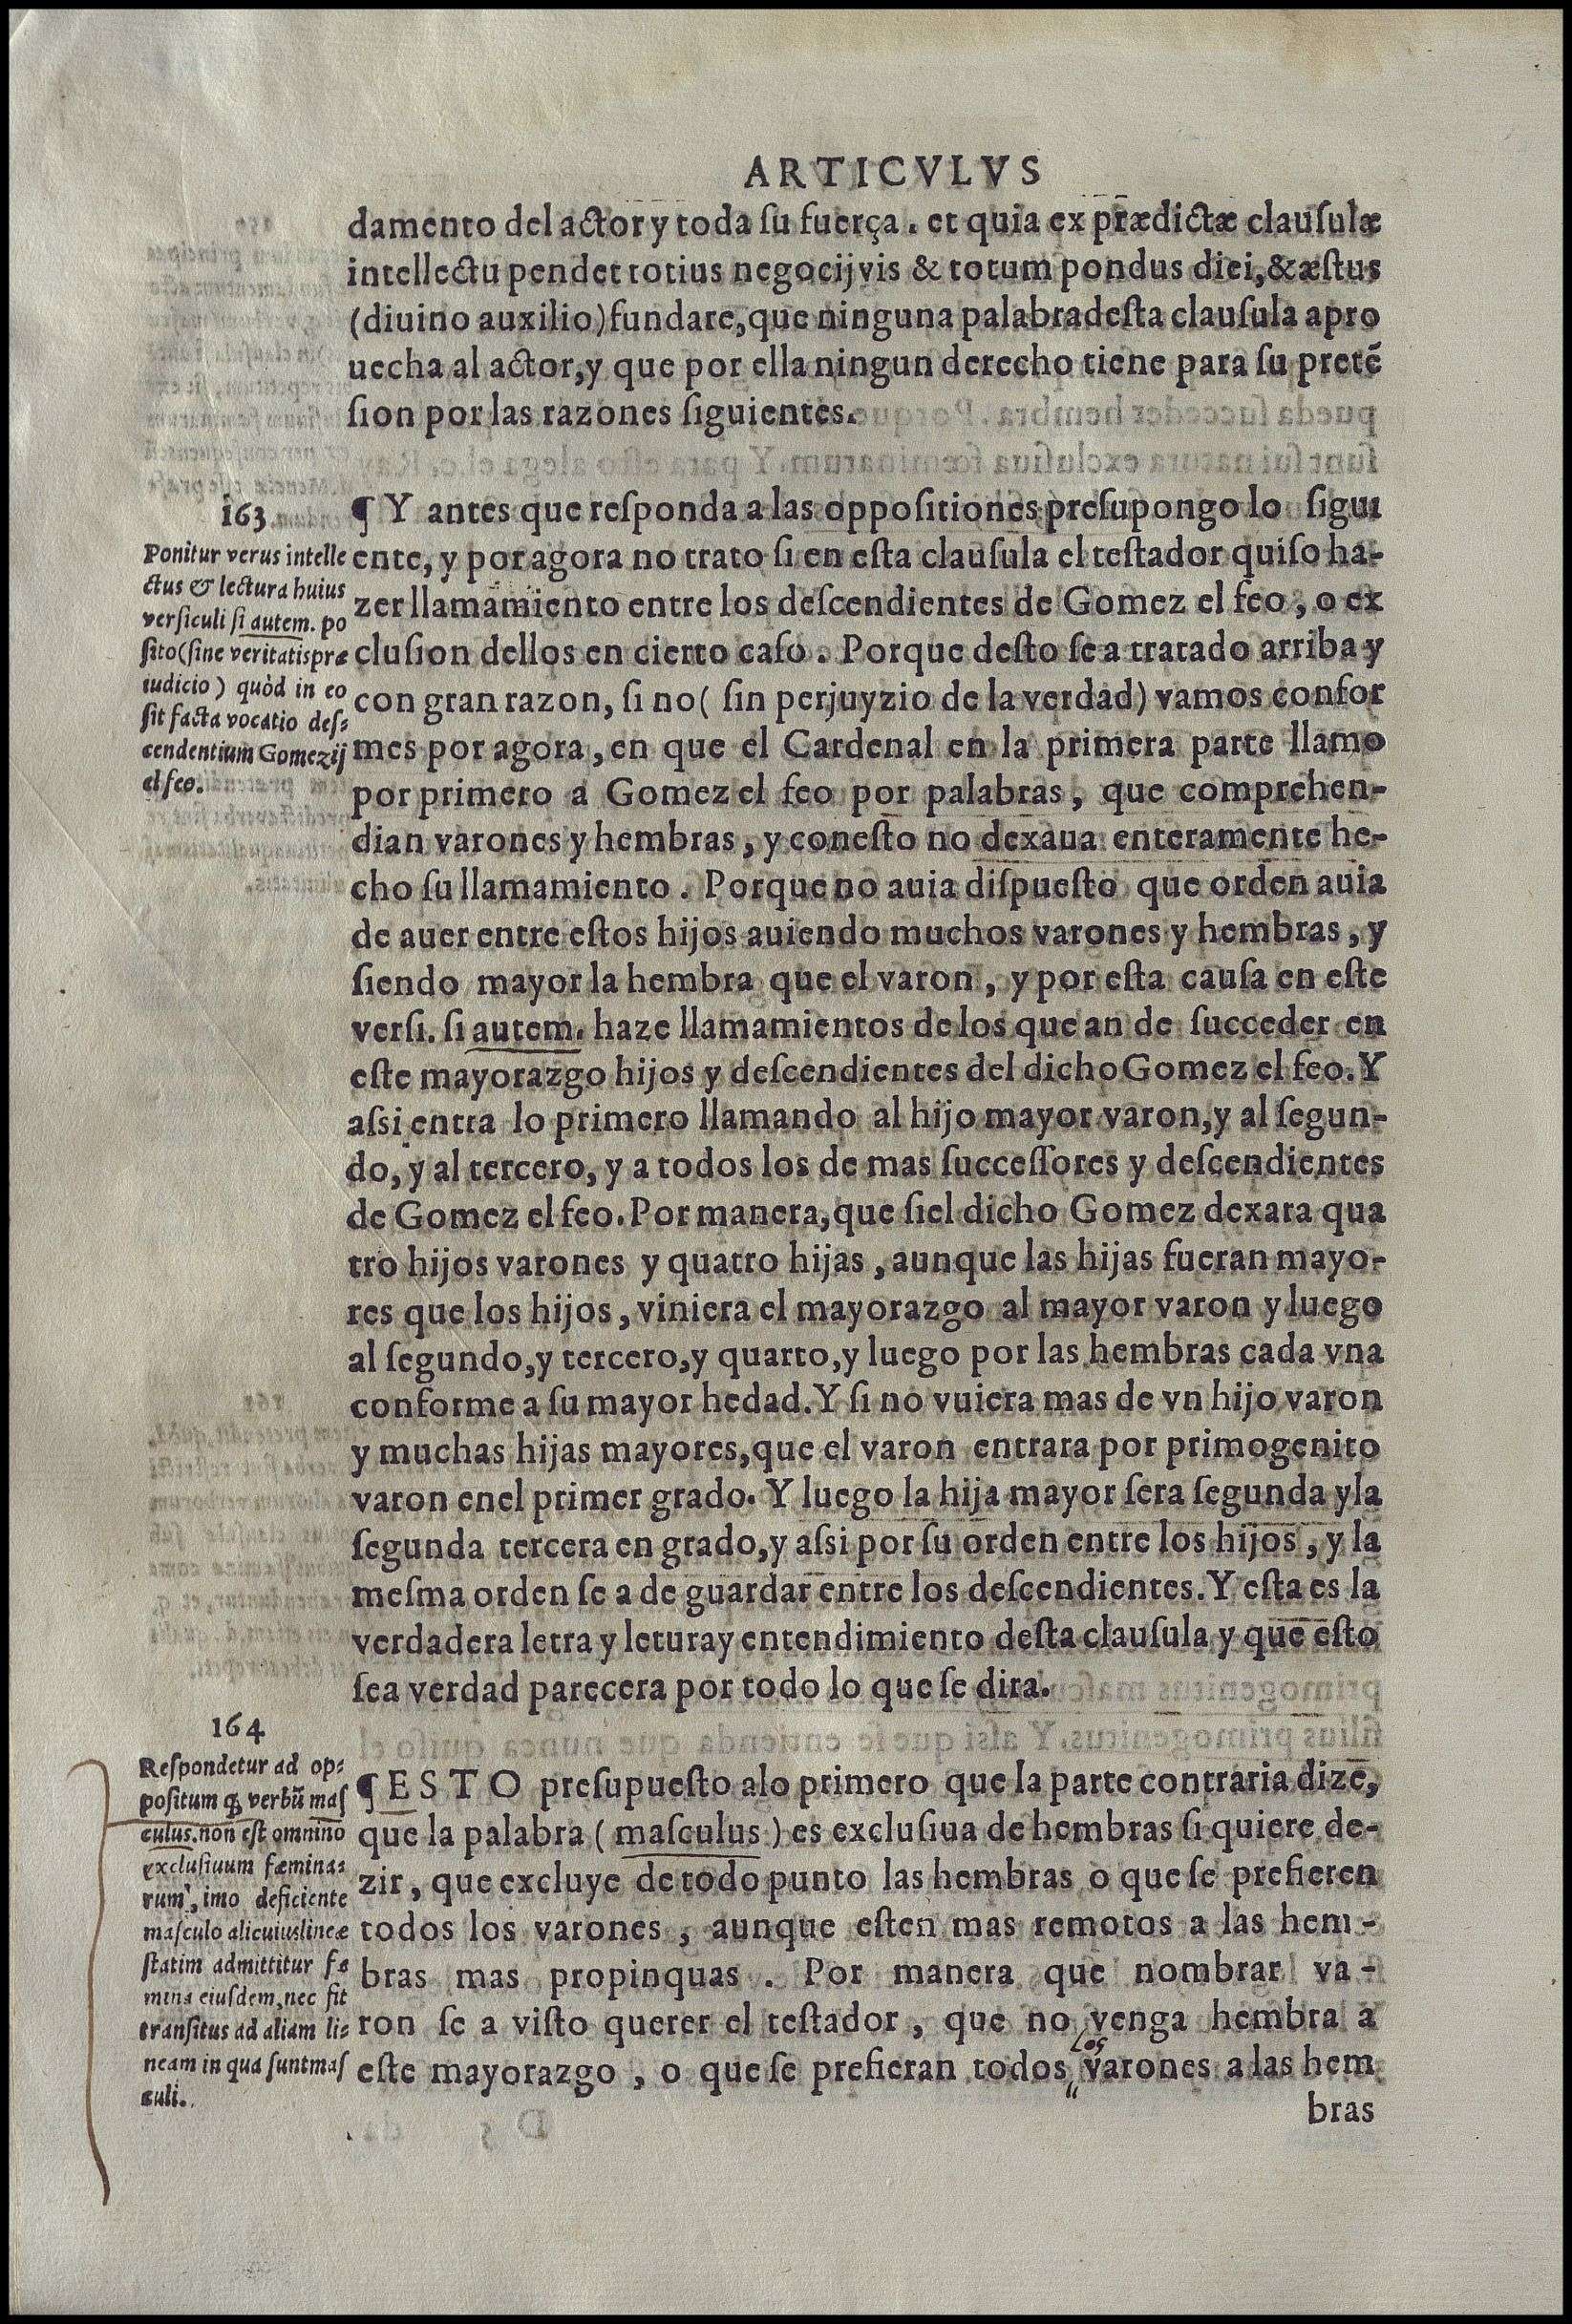 ARTICVLVS
damento del actor y toda ſu fuerça. et quia ex prædictæ clauſulæ
intellectu pendet totius negocij vis & totum pondus diei, & æſtus
(diuino auxilio) fundare, que ninguna palabra deſta clauſula apro
uecha al actor, y que por ella ningun derecho tiene para ſu pretẽ
ſion por las razones ſiguientes.
163
Ponitur verus intelle
ctus & lectura huius
verſiculi ſi autem. po
ſito (ſine veritatis præ
iudicio) quòd in eo
ſit facta vocatio deſ-
cendentium Gomezij
el feo.
¶ Y antes que reſponda a las oppoſitiones preſupongo lo ſigui
ente, y por agora no trato ſi en eſta clauſula el teſtador quiſo ha-
zer llamamiento entre los deſcendientes de Gomez el feo, o ex
cluſion dellos en cierto caſo. Porque deſto ſe a tratado arriba y
con gran razon, ſi no (ſin perjuyzio de la verdad) vamos confor
mes por agora, en que el Cardenal en la primera parte llamo
por primero a Gomez el feo por palabras, que comprehen-
dian varones y hembras, y coneſto no dexaua enteramente he-
cho ſu llamamiento. Porque no auia diſpueſto que orden auia
de auer entre eſtos hijos auiendo muchos varones y hembras, y
ſiendo mayor la hembra que el varon, y por eſta cauſa en eſte
verſi. ſi autem. haze llamamientos de los que an de ſucceder en
eſte mayorazgo hijos y deſcendientes del dicho Gomez el feo. Y
aſsi entra lo primero llamando al hijo mayor varon, y al ſegun-
do, y al tercero, y a todos los de mas ſucceſſores y deſcendientes
de Gomez el feo. Por manera, que ſi el dicho Gomez dexara qua
tro hijos varones y quatro hijas, aunque las hijas fueran mayo-
res que los hijos, viniera el mayorazgo al mayor varon y luego
al ſegundo, y tercero, y quarto, y luego por las hembras cada vna
conforme a ſu mayor hedad. Y ſi no vuiera mas de vn hijo varon
y muchas hijas mayores, que el varon entrara por primogenito
varon enel primer grado. Y luego la hija mayor ſera ſegunda y la
ſegunda tercera en grado, y aſsi por ſu orden entre los hijos, y la
meſma orden ſe a de guardar entre los deſcendientes. Y eſta es la
verdadera letra y letura y entendimiento deſta clauſula y que eſto
ſea verdad parecera por todo lo que ſe dira.
164
Reſpondetur ad op-
poſitum ꝙ verbũ maſ
culus. non eſt omnino
excluſiuum fæmina-
rum, imo deficiente
maſculo alicuius lineæ
ſtatim admittitur fæ
mina eiuſdem, nec fit
tranſitus ad aliam li-
neam in qua ſunt maſ
culi.
¶ ESTO preſupueſto alo primero que la parte contraria dize,
que la palabra (maſculus) es excluſiua de hembras ſi quiere de-
zir, que excluye de todo punto las hembras o que ſe prefieren
todos los varones, aunque eſten mas remotos a las hem-
bras mas propinquas. Por manera que nombrar va-
ron ſe a viſto querer el teſtador, que no venga hembra a
eſte mayorazgo, o que ſe prefieran todos los varones a las hem
bras